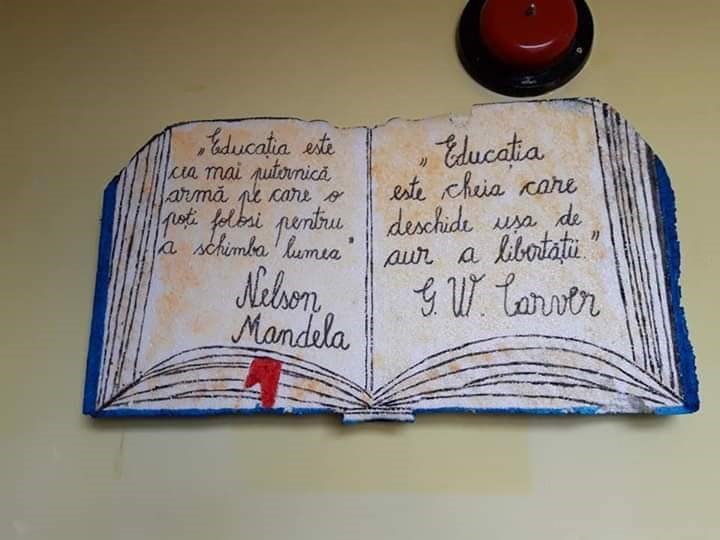 „Educația este
cea mai puternică
armă pe care o
poți folosi pentru
a schimba lumea”
Nelson
Mandela
„Educația
este cheia care
deschide ușa de
aur a libertății.”
G. W. Carver